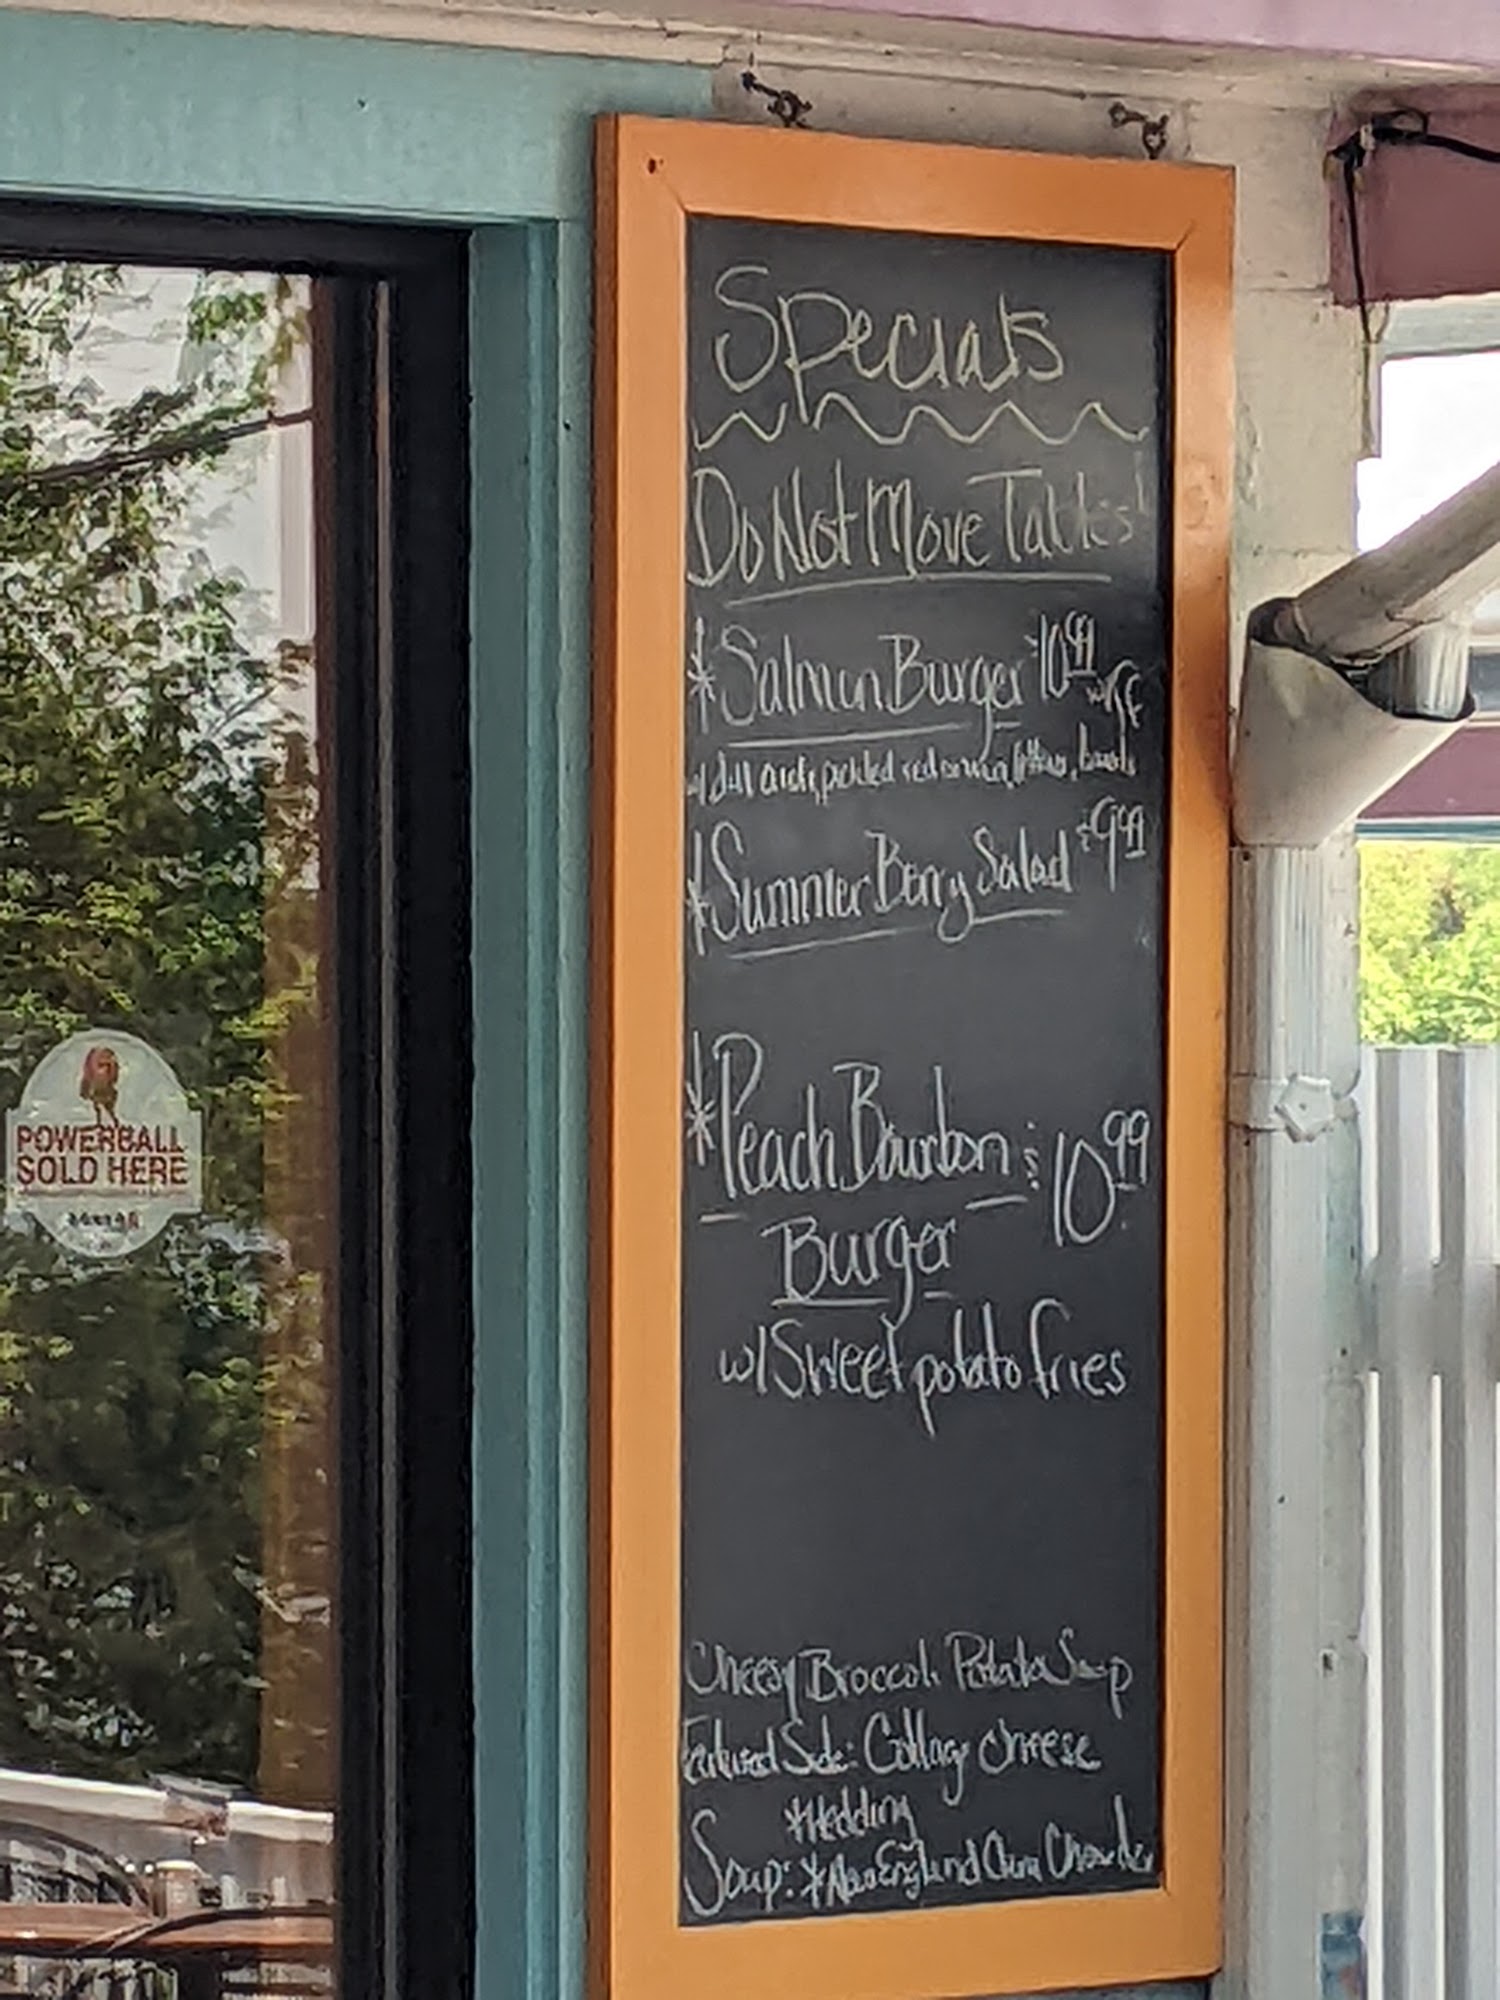 Specials
Do Not Move Tables!
* Salmon Burger $10.99
w/ FF
w/ dill aioli, pickled red onion, lettuce,
* Summer Berry Salad $9.99
* Peach Bourbon $10.99
Burger
w/ Sweet potato fries
Cheesy Broccoli Potato Soup
Featured Side: Cottage cheese
* Wedding
Soup: * New England Clam Chowder
POWERBALL
SOLD HERE